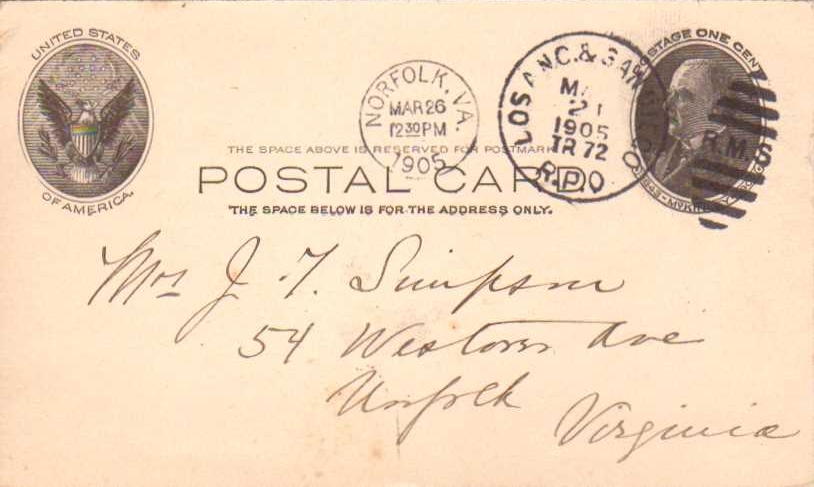 UNITED STATES
OF AMERICA.
NORFOLK, VA.
MAR 26
12 30 PM
1905
LOS ANG. & SAN
21
1905
TR 72
R.P.O
STAGE ONE CENT
R.M.S
THE SPACE ABOVE IS RESERVED FOR POSTMARK
POSTAL CARD
THE SPACE BELOW IS FOR THE ADDRESS ONLY.
Mrs J. T. Simpson
54 Westover Ave
Norfolk
Virginia